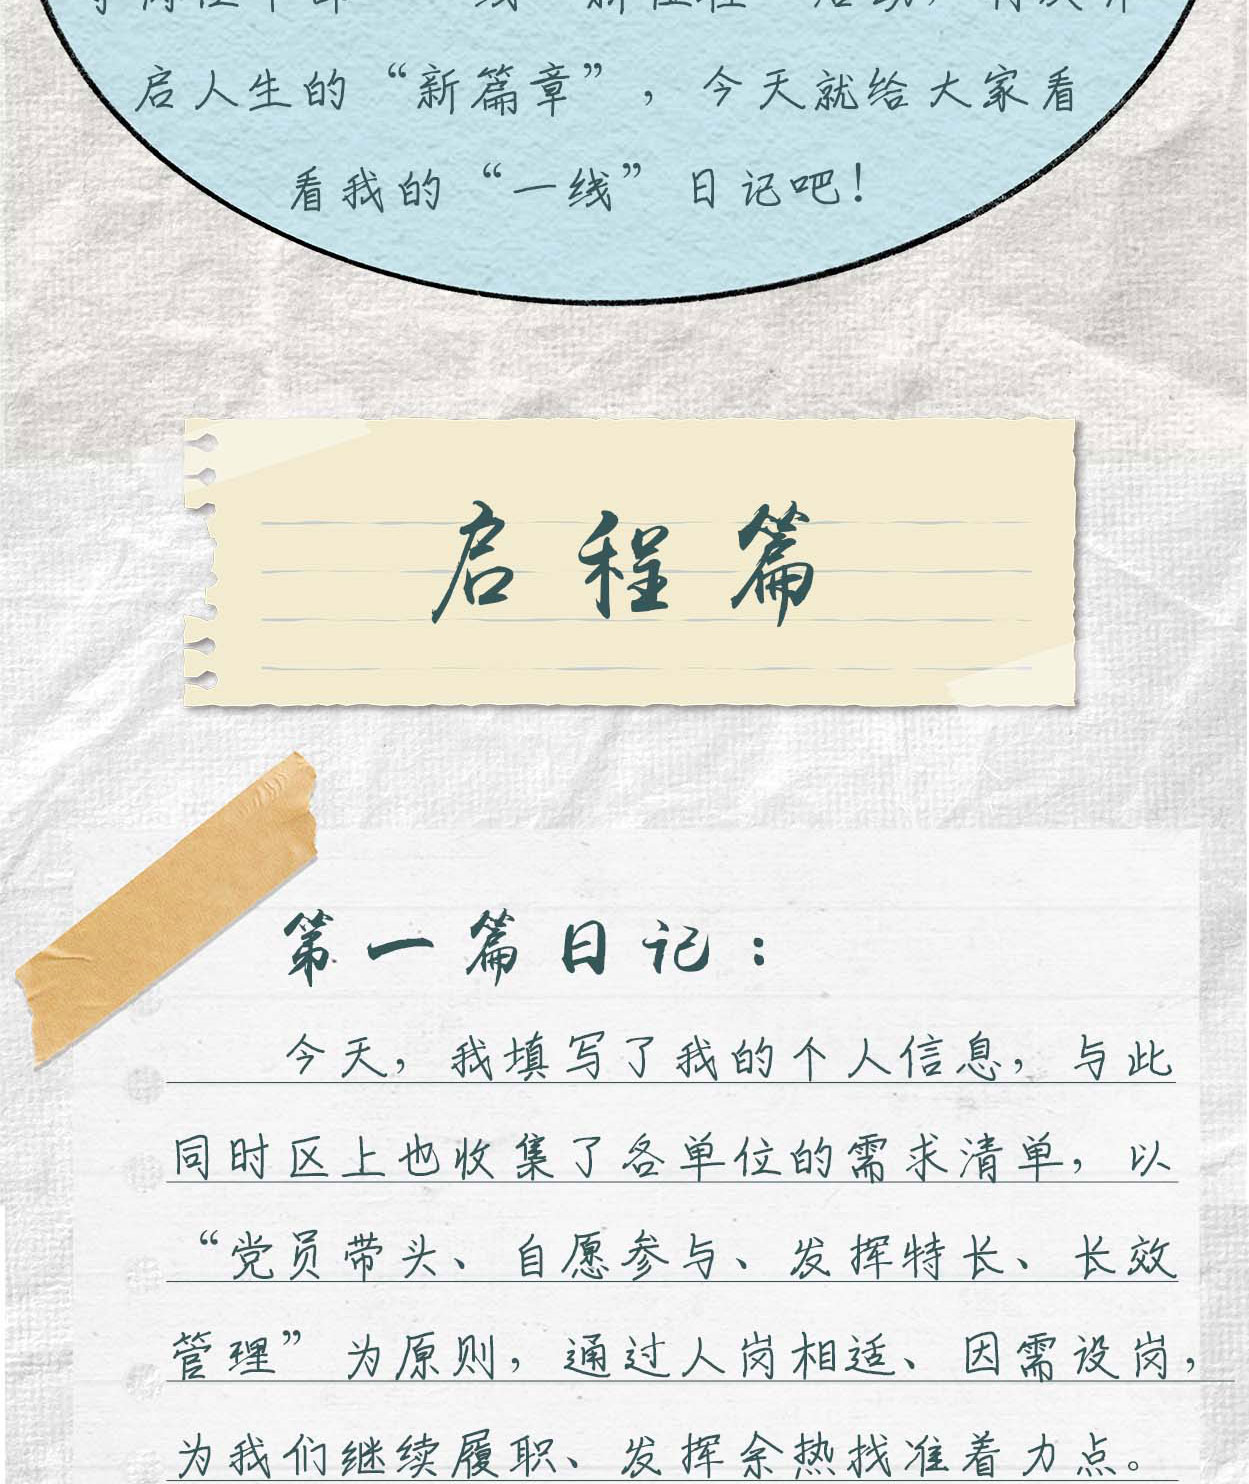 启人生的“新篇章”，今天就给大家看
看我的“一线”日记吧！
启程篇
第一篇日记：
今天，我填写了我的个人信息，与此
同时区上也收集了各单位的需求清单，以
“党员带头、自愿参与、发挥特长、长效
管理”为原则，通过人岗相适、因需设岗，
为我们继续履职、发挥余热找准着力点。